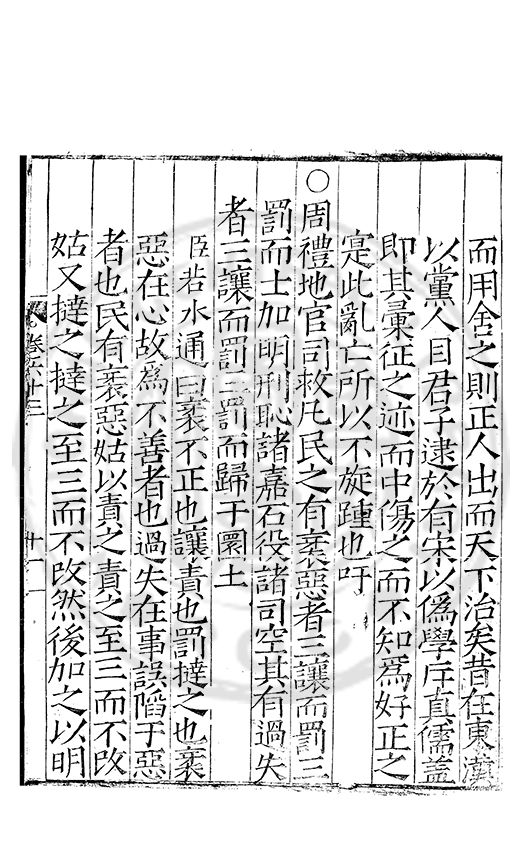 而用舍之則正人出而天下治矣昔在東漢
以黨人目君子逮於有宋以僞學斥真儒蓋
即其彙征之迹而中傷之而不知爲好正之
寔此亂亡所以不旋踵也吁
○周禮地官司救凡民之有衺惡者三讓而罰三
罰而士加明刑恥諸嘉石役諸司空其有過失
者三讓而罰三罰而歸于圜土
臣若水通曰衺不正也讓責也罰撻之也衺
惡在心故爲不善者也過失在事誤陷于惡
者也民有衺惡姑以責之責之至三而不改
姑又撻之撻之至三而不改然後加之以明
卷六十三
十一